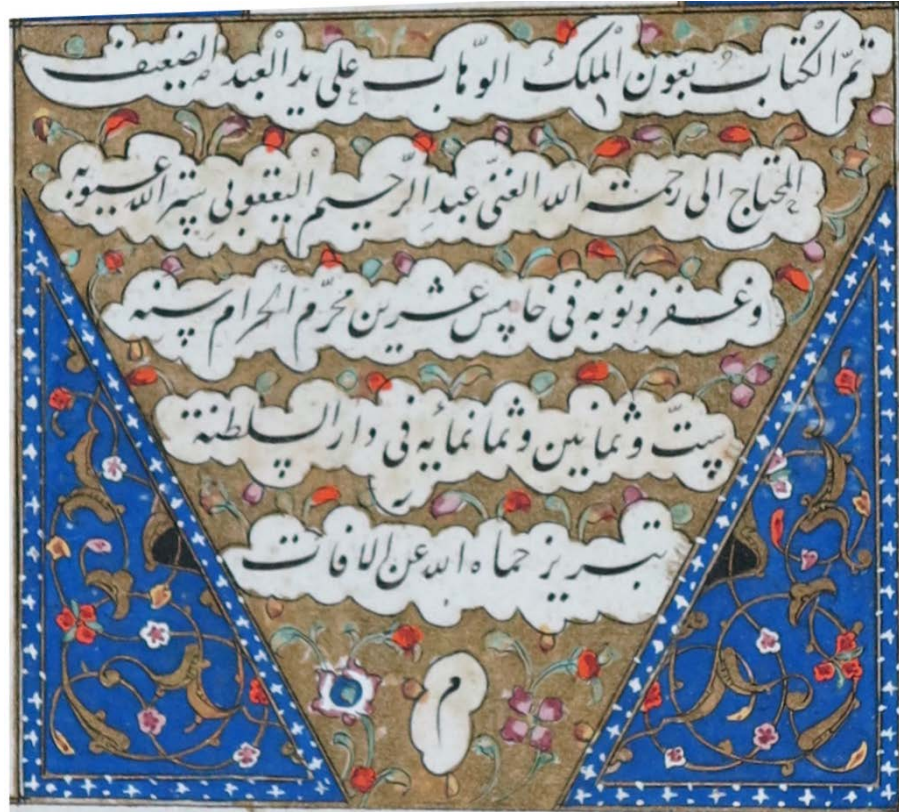 تمّ الكتاب بعون الملك الوهّاب على يد العبد الضعيف
المحتاج الى رحمة الله الغنى عبد الرّحيم اليعقوبى ستر الله عيوبه
و غفر ذنوبه فى خامس عشرين محرّم الحرام سنه
ستّ و ثمانين و ثمانمائه فى دار السلطنة
تبريز حماه الله عن الافات
م